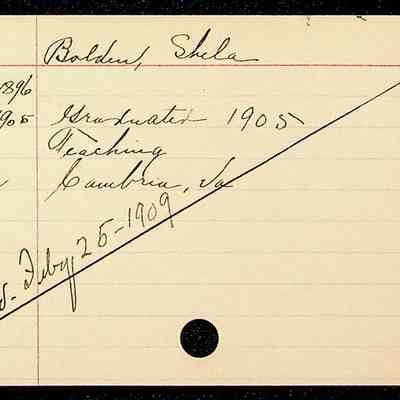 Bolden, Shela
1896
1905 Graduated 1905
Teaching
Cambria, Va
d. Feby 25-1909